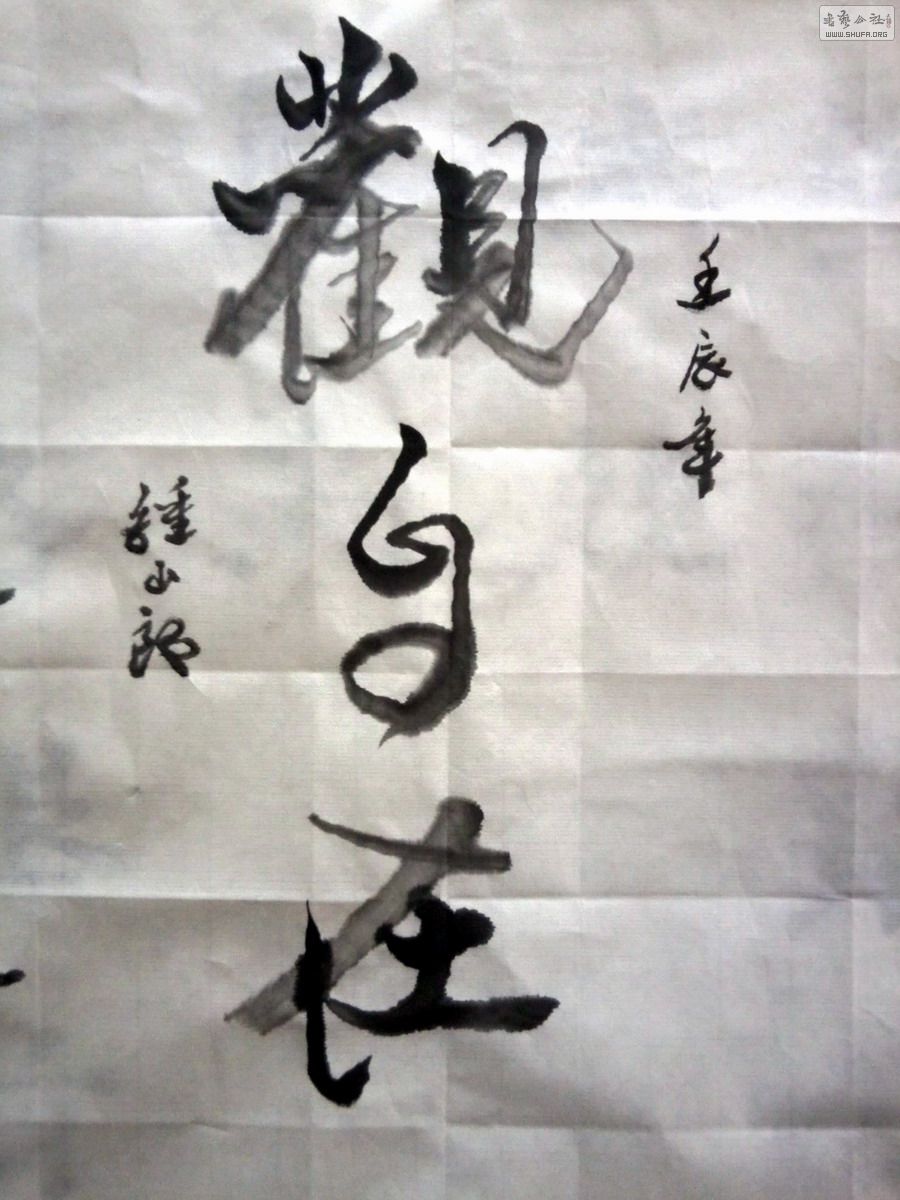 壬辰年
觀自在
鍾山郎
書藝公社
WWW.SHUFA.ORG